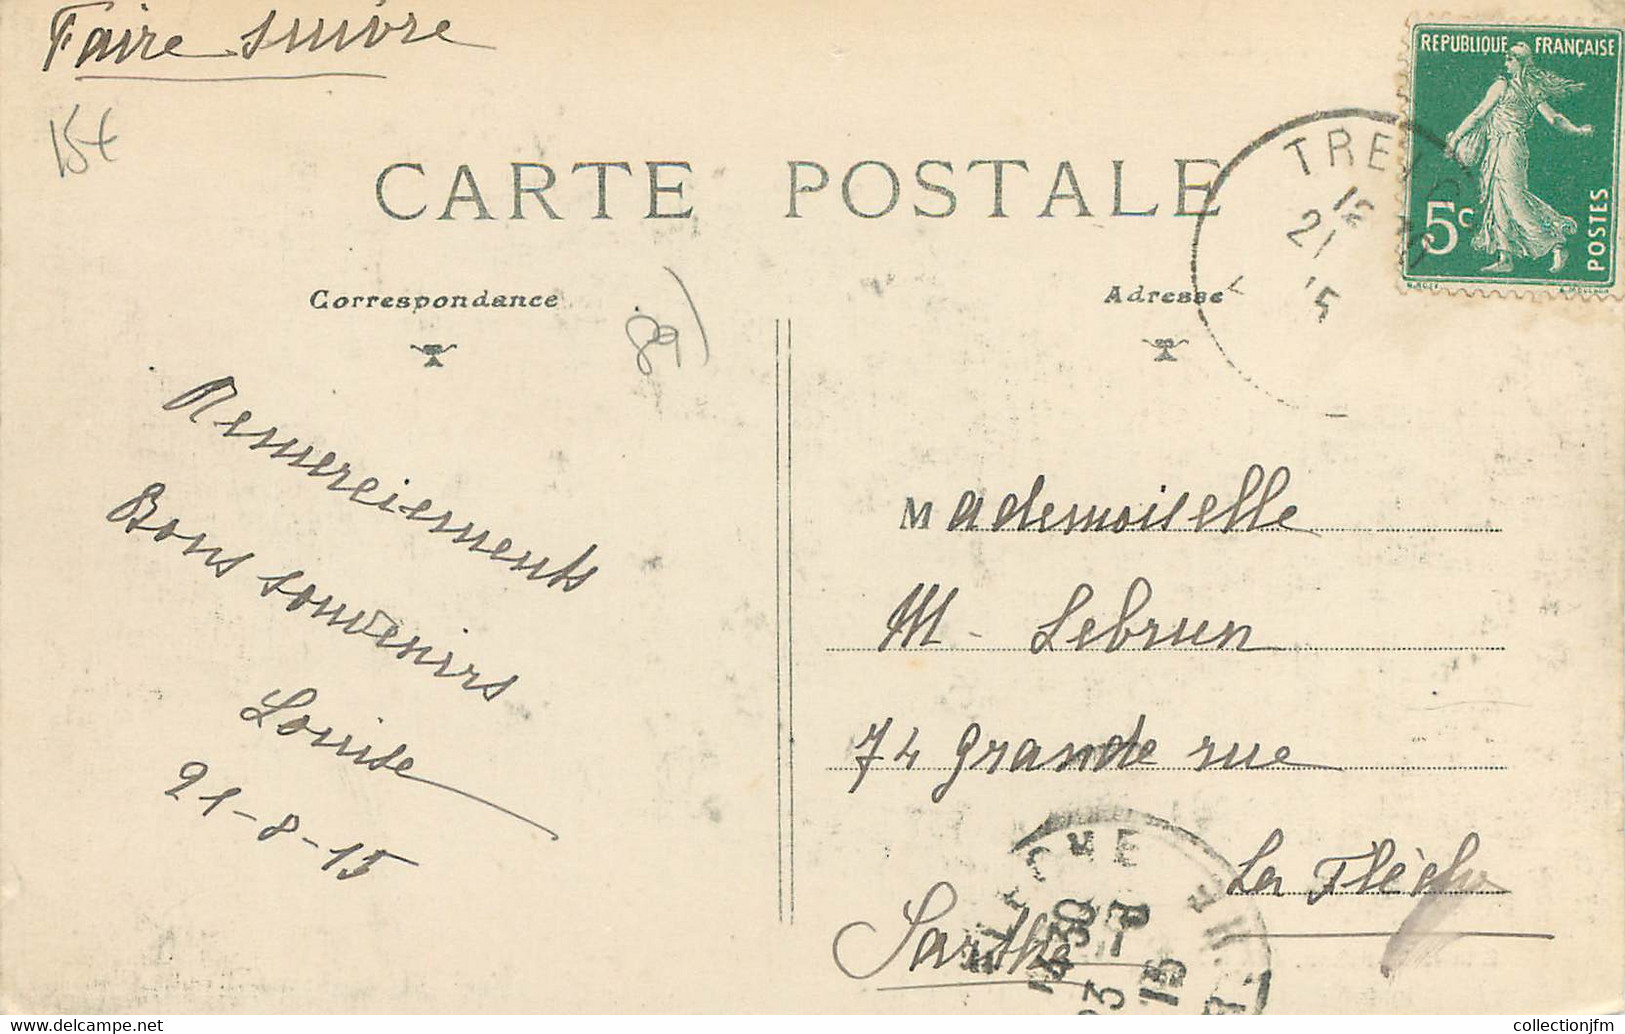 Faire suivre
15€
REPUBLIQUE FRANÇAISE
5c
POSTES
CARTE POSTALE
Correspondance
Adresse
89
Remerciements
Bons souvenirs
Louise
21-8-15
Mademoiselle
M. Lebrun
74 grande rue
La Flèche
Sarthe
21
15
LA FLECHE
15
collectionjfm